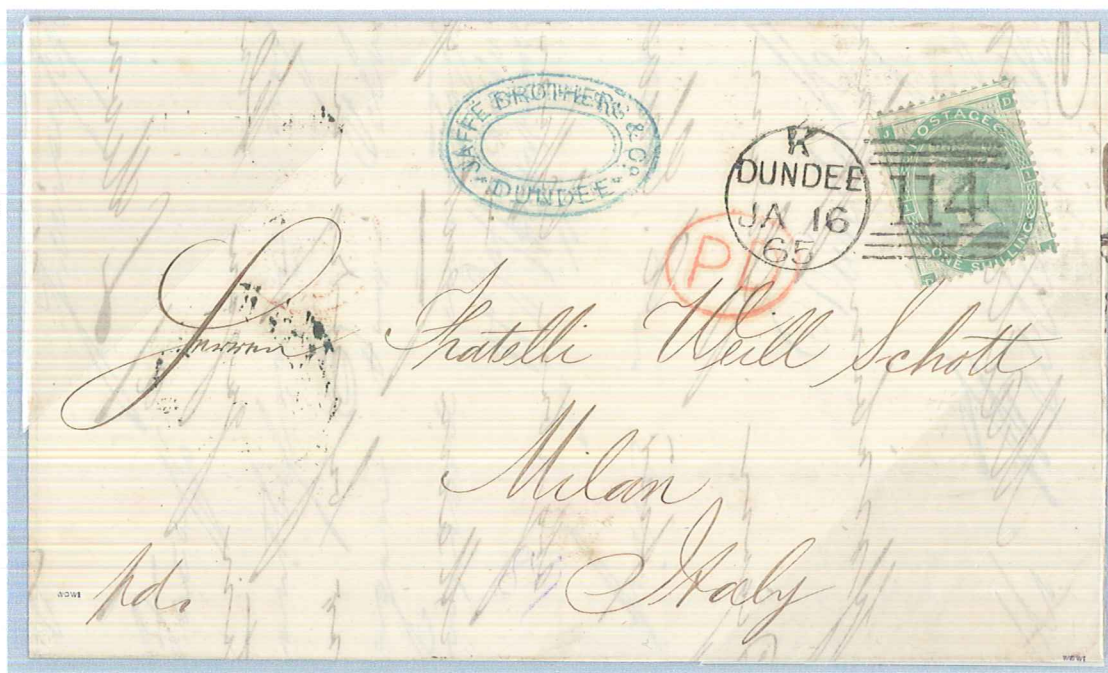 JAFFÉ BROTHERS & Co
DUNDEE
K
DUNDEE
JA 16
65
114
POSTAGE
ONE SHILLING
PD
Herren Fratelli Weill Schott
Milan
Italy
pd.